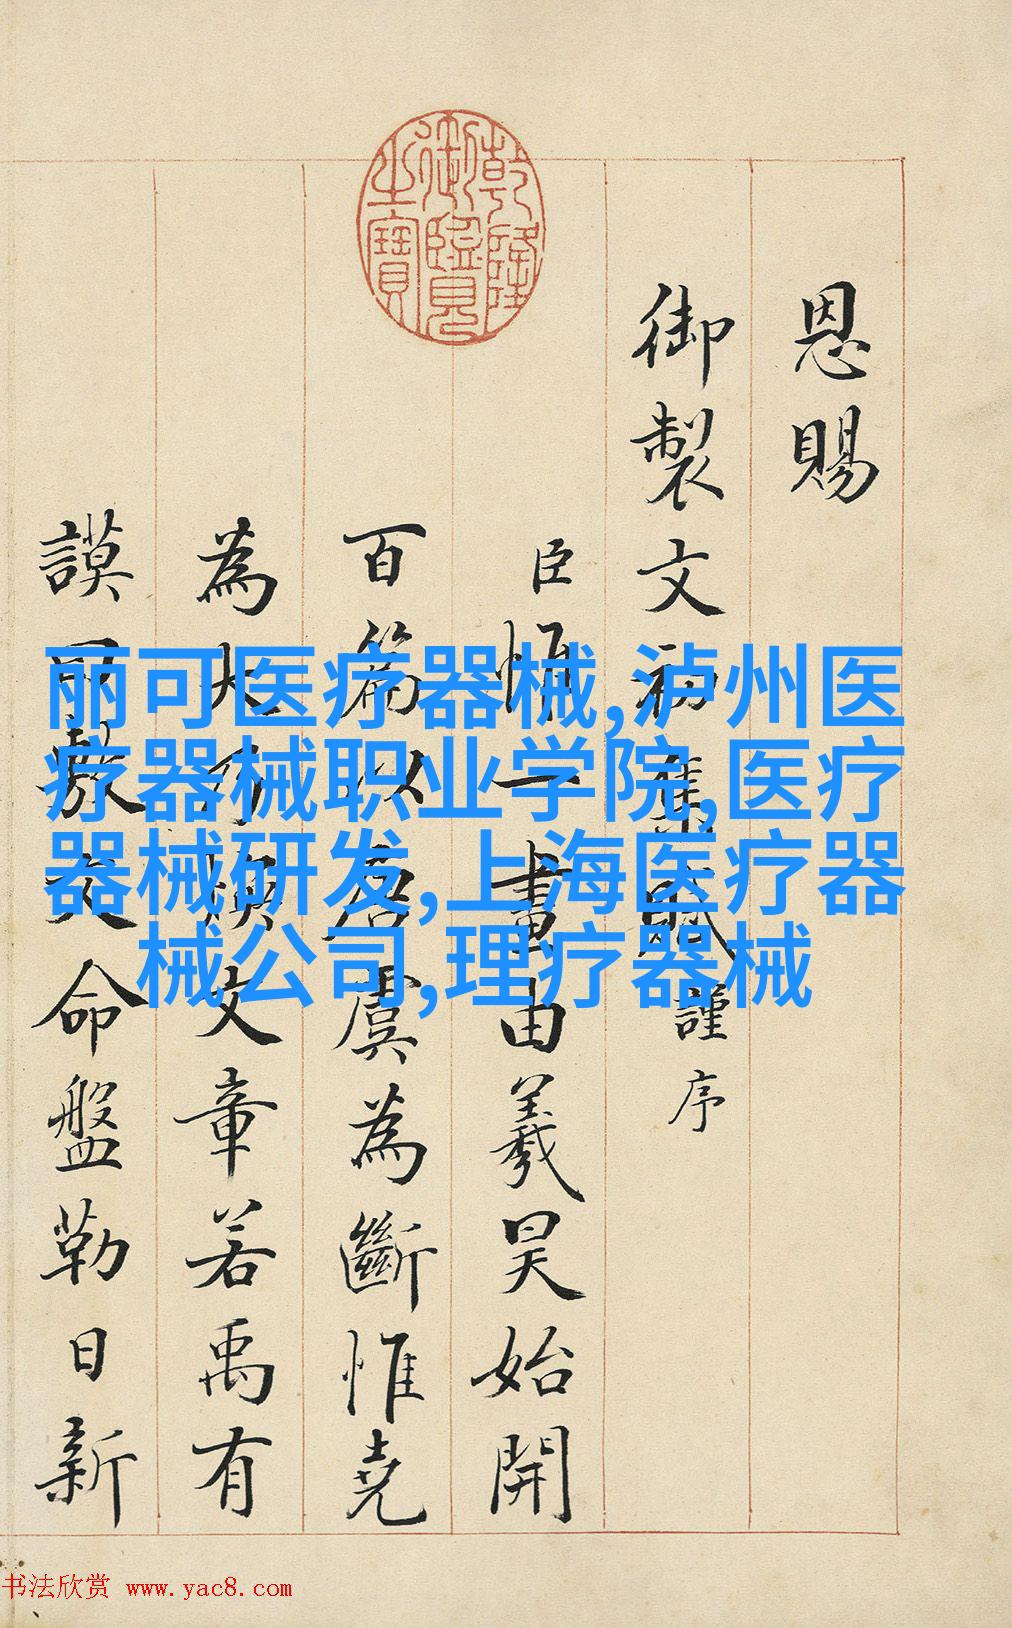 乾隆
御覽
之寶
恩賜
御製文初集賦謹序
臣一畫由羲昊始開
百篇以唐虞為斷惟堯
為大乃煥文章若禹有
謨曰敷文命盤勒日新
丽可医疗器械,泸州医
疗器械职业学院,医疗
器械研发,上海医疗器
械公司,理疗器械
书法欣赏 www.yac8.com